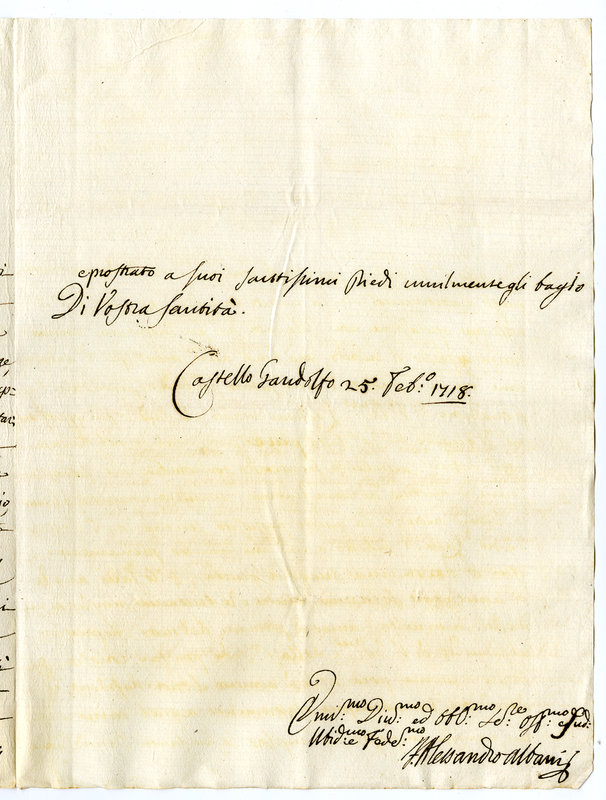 eprostrato a suoi santissimi piedi umilmente gli bagio
Di Vostra Santità.
Castello Gandolfo 25. Feb.º 1718.
Umil.mo Div.mo ed obb.mo
Alessandro Albani